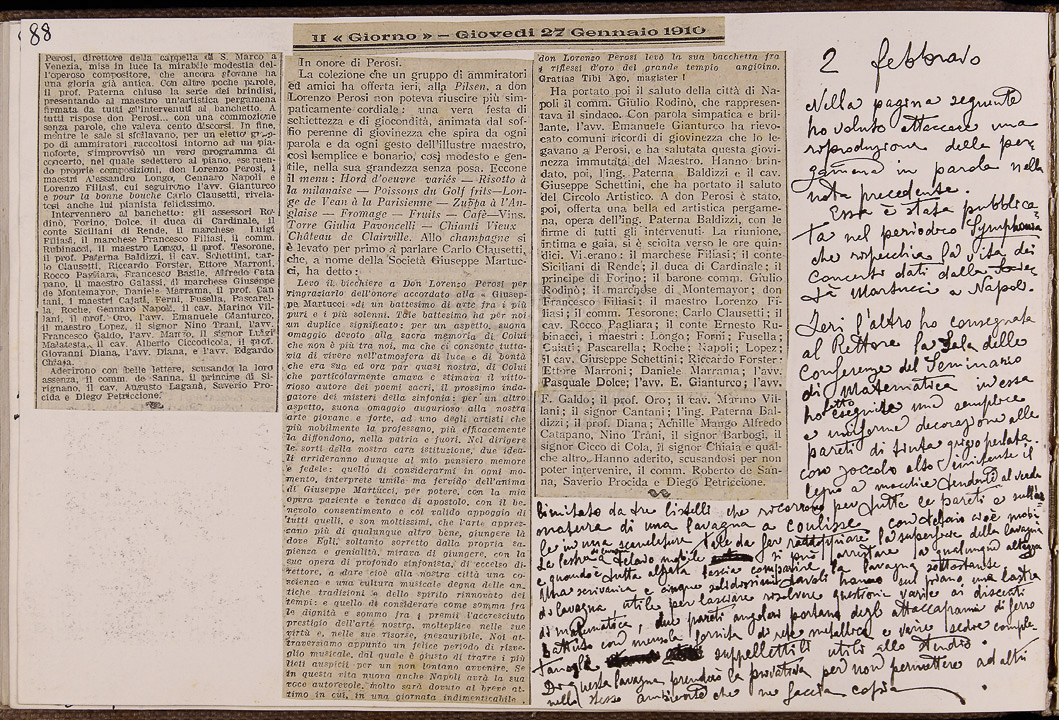 88
Il « Giorno » — Giovedì 27 Gennaio 1910
Perosi, direttore della cappella di S. Marco a
Venezia, mise in luce la mirabile modestia del-
l'operoso compositore, che ancora giovane ha
una gloria già antica. Con altre poche parole,
il prof. Paterna chiuse la serie dei brindisi,
presentando al maestro un'artistica pergamena
firmata da tutti gl'intervenuti al banchetto. A
tutti rispose don Perosi... con una commozione
senza parole, che valeva cento discorsi. In fine,
mentre le sale si sfollavano, per un eletto grup-
po di ammiratori raccoltosi intorno ad un pia-
noforte, s'improvvisò un vero programma di
concerto, nel quale sedettero al piano, eseguen-
do proprie composizioni, don Lorenzo Perosi, i
maestri Alessandro Longo, Gennaro Napoli e
Lorenzo Filiasi, cui seguirono l'avv. Gianturco
e pour la bonne bouche Carlo Clausetti, rivela-
tosi anche lui pianista felicissimo.
Intervennero al banchetto: gli assessori Ro-
dinò, Torino, Dolce, il duca di Cardinale, il
conte Siciliani di Rende, il marchese Luigi
Filiasi, il marchese Francesco Filiasi, il comm.
Rubinacci, il maestro Longo, il prof. Tesorone,
il prof. Paterna Baldizzi, il cav. Schettini, car-
lo Clausetti, Riccardo Forster, Ettore Marroni,
Rocco Pagliara, Francesco Basile, Alfredo Cata
pano, il maestro Galassi, il marchese Giuseppe
de Montemayor, Daniele Marrama, il prof. Can
tani, i maestri Cajati, Ferni, Fusella, Pascarel-
la, Roche, Gennaro Napoli, il cav. Marino Vil-
lani, il prof. Oro, l'avv. Emanuele Gianturco,
il maestro Lopez, il signor Nino Trani, l'avv.
Francesco Galdo, l'avv. Marzio, il signor Luigi
Malatesta, il cav. Alberto Ciccodicola, il prof.
Giovanni Diana, l'avv. Diana, e l'avv. Edgardo
Chiaia.
Aderirono con belle lettere, scusando la loro
assenza, il comm. de Sanna, il principe di Si-
rignano, il cav. Augusto Laganà, Saverio Pro-
cida e Diego Petriccione.
In onore di Perosi.
La colezione che un gruppo di ammiratori
ed amici ha offerta ieri, alla Pilsen, a don
Lorenzo Perosi non poteva riuscire più sim-
paticamente cordiale: una vera festa di
schiettezza e di giocondità, animata dal sof-
fio perenne di giovinezza che spira da ogni
parola e da ogni gesto dell'illustre maestro,
così semplice e bonario, così modesto e gen-
tile, nella sua grandezza senza posa. Eccone
il menu: Hord d'oeuvre variés — Risotto à
la milanaise — Poissons du Golf frits—Lon-
ge de Vean à la Parisienne — Zuppa à l'An-
glaise — Fromage — Fruits — Cafè—Vins.
Torre Giulia Pavoncelli — Chianti Vieux
Château de Clairville. Allo champagne si
è levato per primo a parlare Carlo Clausetti,
che, a nome della Società Giuseppe Martuc-
ci, ha detto:
Levo il bicchiere a Don Lorenzo Perosi per
ringraziarlo dell'onore accordato alla « Giusep-
pe Martucci »di un battesimo di arte fra i più
puri e i più solenni. Tale battesimo ha per noi
un duplice significato: per un aspetto, suona
omaggio devoto alla sacra memoria di Colui
che non è più tra noi, ma ci consente tutta-
via di vivere nell'atmosfera di luce e di bontà
che era sua ed ora par quasi nostra, di Colui
che particolarmente amava e stimava il vitto-
rioso autore dei poemi sacri, il prossimo inda-
gatore dei misteri della sinfonia; per un altro
aspetto, suona omaggio augurioso alla nostra
arte giovane e forte, ad uno degli artisti che
più nobilmente la professano, più efficacemente
la diffondono, nella patria e fuori. Nel dirigere
le sorti della nostra cara istituzione, due idea-
li arrideranno dunque al mio pensiero memore
e fedele: quello di considerarmi in ogni mo-
mento, interprete umile ma fervido dell'anima
di Giuseppe Martucci, per potere, con la mia
opera paziente e tenace di apostolo, con il be-
nevolo consentimento e col valido appoggio di
tutti quelli, e son moltissimi, che l'arte apprez-
zano più di qualunque altro bene, giungere là
dove Egli, soltanto sorretto dalla propria sa-
pienza e genialità, mirava di giungere, con la
sua opera di profondo sinfonista, di eccelso di-
rettore, a dare cioè alla nostra città una co-
scienza e una cultura musicale degna delle an-
tiche tradizioni e dello spirito rinnovato dei
tempi: e quello di considerare come somma fra
le dignità e sommo fra i premii l'accresciuto
prestigio dell'arte nostra, molteplice nelle sue
virtù e, nelle sue risorse, inesauribile. Noi at-
traversiamo appunto un felice periodo di risve-
glio musicale, dal quale è giusto di trarre i più
lieti auspicii per un non lontano avvenire. Se
in questa vita nuova anche Napoli avrà la sua
voce autorevole, molto sarà dovuto al breve at-
timo in cui, in una giornata indimenticabile,
don Lorenzo Perosi levò la sua bacchetta fra
i riflessi d'oro del grande tempio angioino.
Gratias Tibi Ago, magister!
Ha portato poi il saluto della città di Na-
poli il comm. Giulio Rodinò, che rappresen-
tava il sindaco. Con parola simpatica e bril-
lante, l'avv. Emanuele Gianturco ha rievo-
cato comuni ricordi di giovinezza che lo le-
gavano a Perosi, e ha salutata questa giovi-
nezza immutata del Maestro. Hanno brin-
dato, poi, l'ing. Paterna Baldizzi e il cav.
Giuseppe Schettini, che ha portato il saluto
del Circolo Artistico. A don Perosi è stato,
poi, offerta una bella ed artistica pergame-
na, opera dell'ing. Paterna Baldizzi, con le
firme di tutti gli intervenuti. La riunione,
intima e gaia, si è sciolta verso le ore quin-
dici. Vi erano: il marchese Filiasi; il conte
Siciliani di Rende; il duca di Cardinale; il
principe di Forino; il barone comm. Giulio
Rodinò; il marchese di Montemayor; don
Francesco Filiasi; il maestro Lorenzo Fi-
liasi; il comm. Tesorone; Carlo Clausetti; il
cav. Rocco Pagliara; il conte Ernesto Ru-
binacci, i maestri: Longo; Forni; Fusella;
Caiati; Pascarelli; Roche; Napoli; Lopez;
il cav. Giuseppe Schettini; Riccardo Forster;
Ettore Marroni; Daniele Marrama; l'avv.
Pasquale Dolce; l'avv. E. Gianturco; l'avv.
F. Galdo; il prof. Oro; il cav. Marino Vil-
lani; il signor Cantani; l'ing. Paterna Bal-
dizzi; il prof. Diana; Achille Mango Alfredo
Catapano, Nino Tràni, il signor Barbogi, il
signor Cicco di Cola, il signor Chiaia e qual-
che altro. Hanno aderito, scusandosi per non
poter intervenire, il comm. Roberto de San-
na, Saverio Procida e Diego Petriccione.
2 febbraio
Nella pagina seguente
ho voluto attaccare una
riproduzione della per
gamena in parola nella
nota precedente.
Essa è stata pubblica-
ta nel periodico Symphonia
che rispecchia la vita dei
concerti dati dalla
tà Martucci a Napoli.
Ieri l'altro ho consegnata
al Rettore la Sala delle
Conferenze del Seminario
di Matematica in essa
ho fatto eseguire una semplice
e uniforme decorazione alle
pareti di tinta grigio perlata
con zoccolo alto imitante il
legno a macchie tendente al verde
limitato da tre listelli che ricorrono per tutte le pareti e sulla
ornatura di una lavagna a coulisse con telaio cioè mobi-
le in una scanalatura tale da far rattoppiare la superficie della lavagna
e quando è tutta alzata lascia comparire la lavagna sottostante.
Una scrivania e cinque solidissimi tavoli hanno sul piano una lastra
di lavagna, utile per lasciare risolvere questioni varie ai discenti
di matematica, due pareti angolari portano degli attaccapanni di ferro
battuto con mensola fornita di rete metallica e varie sedie comple-
tano le suppellettili utili allo studio.
Di questa lavagna prenderò la privativa per non permettere ad altri
nello stesso ambiente che ne faccia copia.